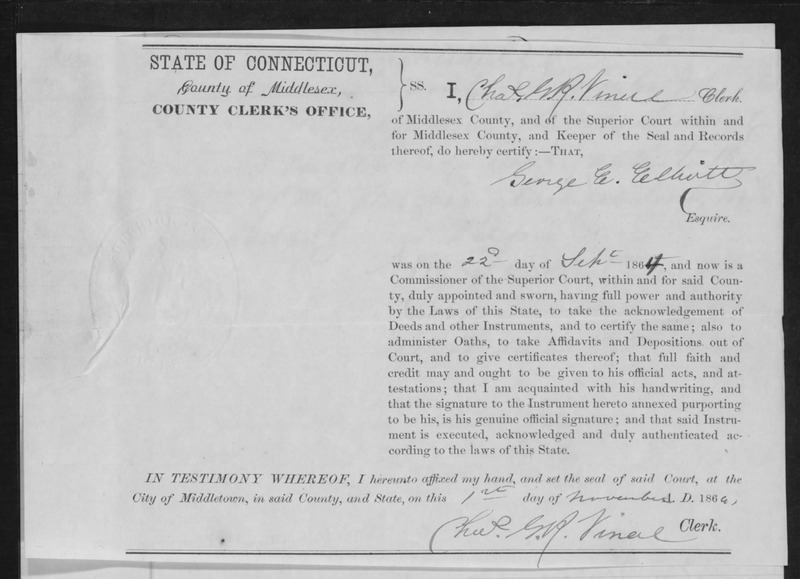 STATE OF CONNECTICUT,
County of Middlesex,
COUNTY CLERK'S OFFICE,
SS. I, Chas. G. R. Vinal Clerk
of Middlesex County, and of the Superior Court within and
for Middlesex County, and Keeper of the Seal and Records
thereof, do hereby certify:—THAT,
George E. Elliott
Esquire.
was on the 22d day of Sept 1864, and now is a
Commissioner of the Superior Court, within and for said Coun-
ty, duly appointed and sworn, having full power and authority
by the Laws of this State, to take the acknowledgement of
Deeds and other Instruments, and to certify the same; also to
administer Oaths, to take Affidavits and Depositions out of
Court, and to give certificates thereof; that full faith and
credit may and ought to be given to his official acts, and at-
testations; that I am acquainted with his handwriting, and
that the signature to the Instrument hereto annexed purporting
to be his, is his genuine official signature; and that said Instru-
ment is executed, acknowledged and duly authenticated ac-
cording to the laws of this State.
IN TESTIMONY WHEREOF, I hereunto affixed my hand, and set the seal of said Court, at the
City of Middletown, in said County, and State, on this 1st day of November A. D. 186
Chas. G. R. Vinal Clerk.